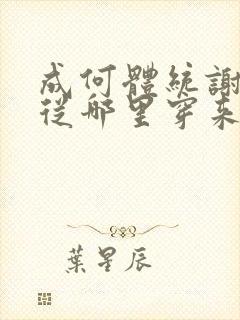 成何體統謝
從哪里穿來
葉星辰